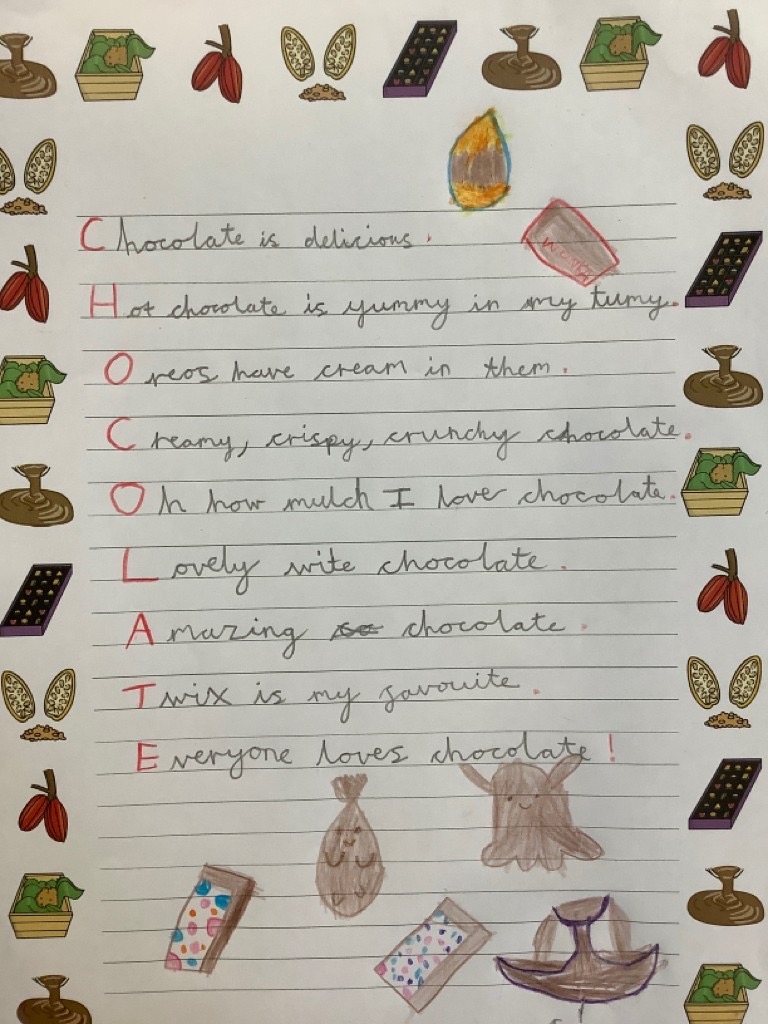 Wonka
Chocolate is delicious.
Hot chocolate is yummy in my tumy.
Oreos have cream in them.
Creamy, crispy, crunchy chocolate.
Oh how mulch I love chocolate.
Lovely wite chocolate.
Amazing chocolate.
Twix is my favouite.
Everyone loves chocolate!